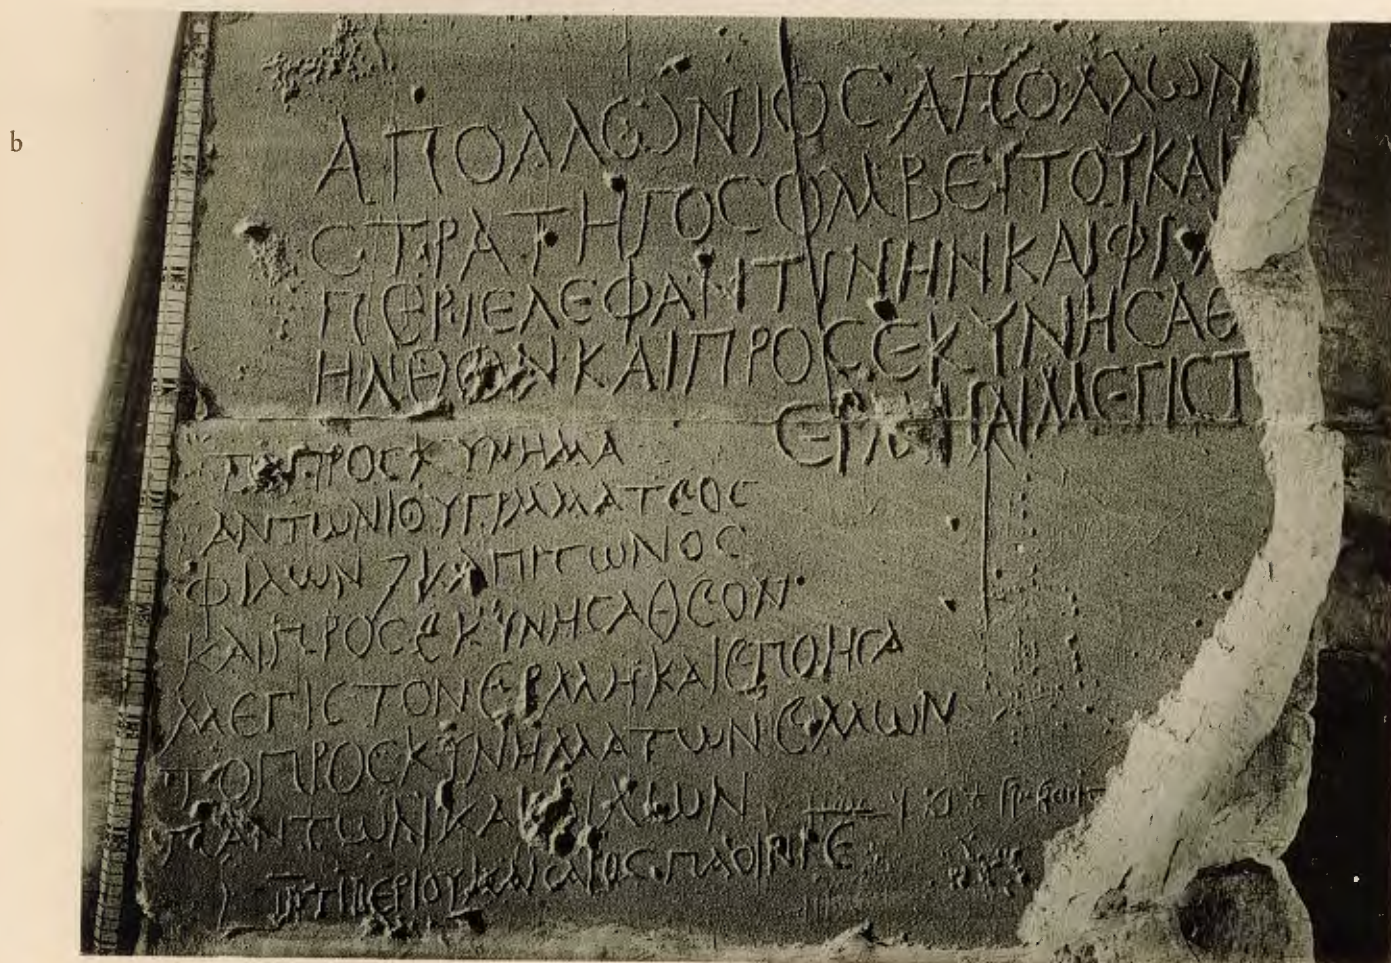 b
ΑΠΟΛΛΩΝΙΟϹ ΑΠΟΛΛΩΝ
ϹΤΡΑΤΗΓΟϹ ΟΜΒΕΙΤΟΥ ΚΑΙ
ΠΕΡΙ ΕΛΕΦΑΝΤΙΝΗΝ ΚΑΙ ΦΙΛΑ
ΗΛΘΟΝ ΚΑΙ ΠΡΟϹΕΚΥΝΗϹΑ ΘΕ
ΕΡΜΗΝ ΜΕΓΙϹΤ
ΤΟ ΠΡΟϹΚΥΝΗΜΑ
ΑΝΤΩΝΙΟΥ ΓΡΑΜΑΤΕΟϹ
ΦΙΛΩΝ ΚΑΠΙΤΩΝΟϹ
ΚΑΙ ΠΡΟϹΕΚΥΝΗϹΑ ΘΕΟΝ
ΜΕΓΙϹΤΟΝ ΕΡΜΗ ΚΑΙ ΕΠΟΗϹΑ
ΤΟ ΠΡΟϹΚΥΝΗΜΑ ΤΩΝ ΕΜΩΝ
ΠΑΝΤΩΝ ΚΑΙ ΦΙΛΩΝ
ΤΙΒΕΡΙΟΥ ΚΑΙϹΑΡΟϹ